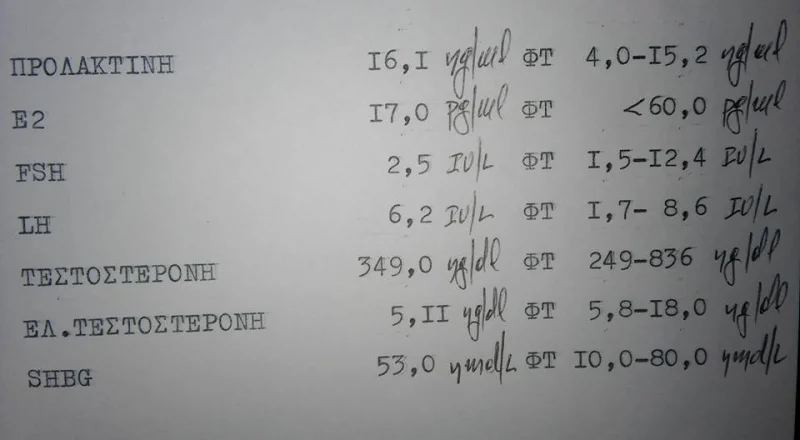 ΠΡΟΛΑΚΤΙΝΗ 16,1 ng/ml ΦΤ 4,0-15,2 ng/ml
E2 17,0 pg/ml ΦΤ <60,0 pg/ml
FSH 2,5 IU/L ΦΤ 1,5-12,4 IU/L
LH 6,2 IU/L ΦΤ 1,7- 8,6 IU/L
ΤΕΣΤΟΣΤΕΡΟΝΗ 349,0 ng/dl ΦΤ 249-836 ng/dl
ΕΛ.ΤΕΣΤΟΣΤΕΡΟΝΗ 5,11 ng/dl ΦΤ 5,8-18,0 ng/dl
SHBG 53,0 nmol/L ΦΤ 10,0-80,0 nmol/L